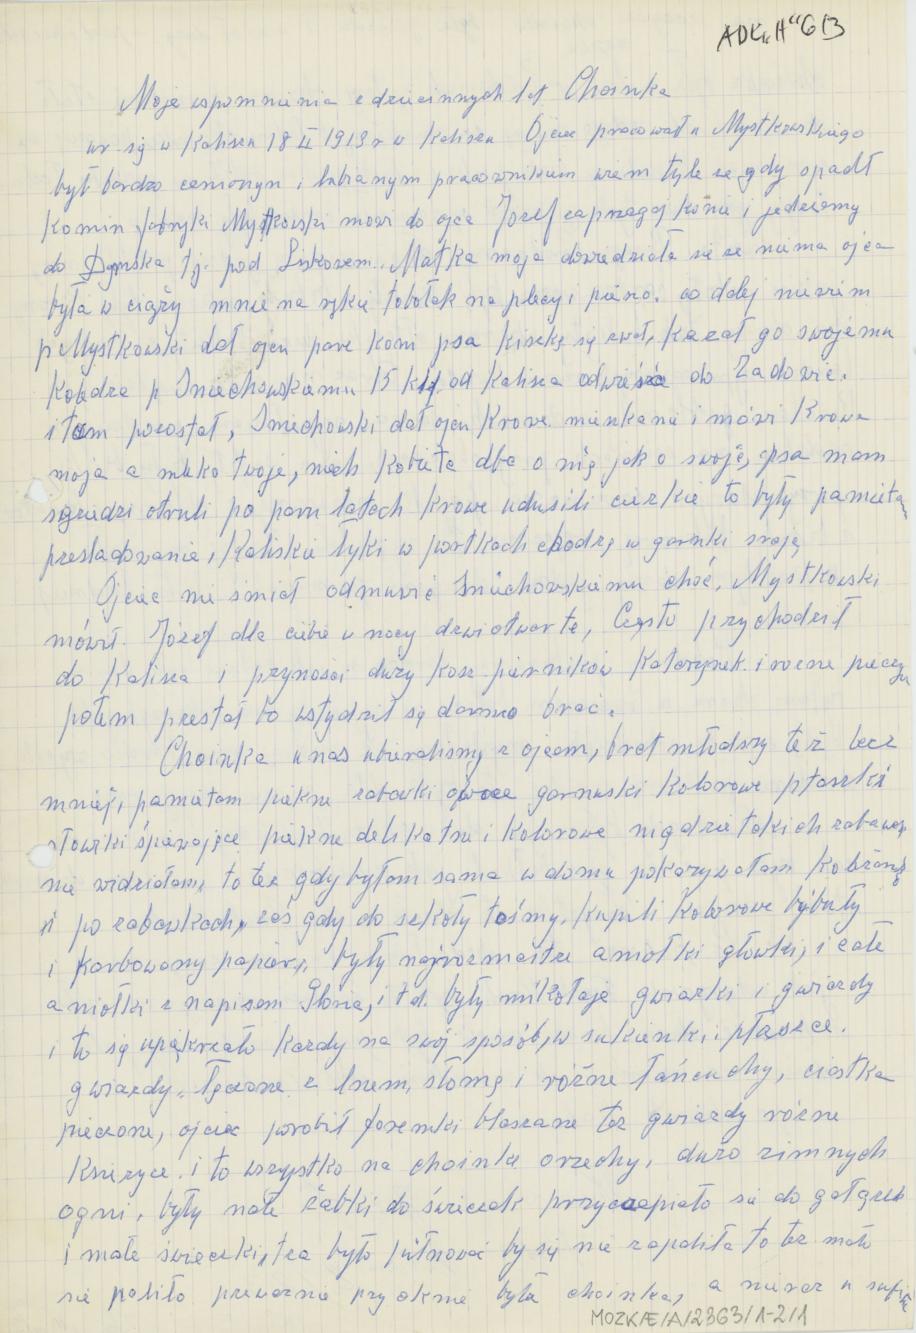 ADK „H" 6B
Moje wspomnienia z dziecinnych lat Choinka
ur się w Kaliszu 18 II 1913 r w Kaliszu Ojciec pracował u Mystkowskiego
był bardzo cenionym i lubianym pracownikiem wiem tyle że gdy spadł
Komin fabryki Mystkowski mówi do ojca Józef zaprzęgaj konie i jedziemy
do tj. pod Matka moja dowiedziała się że niema ojca
była w ciąży mnie na rękie tobołek na plecy i pieszo. co dalej niewiem
p Mystkowski dał ojcu pare koni psa się zwał, kazał go swojemu
Koledze p Śniechowskiemu 15 km od Kalisza odwieść do Zadowic.
i tam pozostał, Śmiechowski dał ojcu krowe mieszkanie i mówi Krowa
moja a mleko twoje, niech kobieta dba o nią jak o swoją, psa nam
sąsiedzi otruli po paru latach krowe udusili ciężkie to były pamietam
prześladowanie, Kaliskie łyki w portkach chodzą w garnki srają
Ojciec nie śmiał odmówić Śmiechowskiemu choć. Mystkowski
mówił. Józef dla ciebie w nocy drzwi otwarte, Często przychodził
do Kalisza i przynosił duży kosz pierników Katarzynek i rożne
potem przestał bo wstydził się darmo brać.
Choinka u nas ubieraliśmy z ojcem, brat młodszy też lecz
mniej, pamietam piękne zabawki owoce garnuszki kolorowe ptaszki
słowiki śpiewające piękne delikatne i kolorowe nigdzie takich zabawek
nie widziałam, to też gdy byłam sama w domu pokazywałam
po zabawkach, zaś gdy do szkoły tośmy. kupili kolorowe bibuły
i karbowany papier, były najrozmaitsze aniołki główki, i całe
aniołki z napisem Gloria, i td. były mikołaje gwiazki i gwiazdy
i to się upiększało każdy na swój sposób, w sukienki, i płaszcze.
gwiazdy, łączone z lnem, słomą i różne łańcuchy, ciastka
pieczone, ojciec porobił foremki blaszane też gwiazdy różne
Ksieżyce. i to wszystko na choinkę orzechy, dużo zimnych
ogni, były małe żabki do świeczek przyczepiało się do gałązek
i małe świeczki, trza było pilnować by się nie zapaliła to też mało
sie paliło przeważnie przy oknie była choinka, a nieraz u sufitu
MOZK/E/A/2363/1-2/1